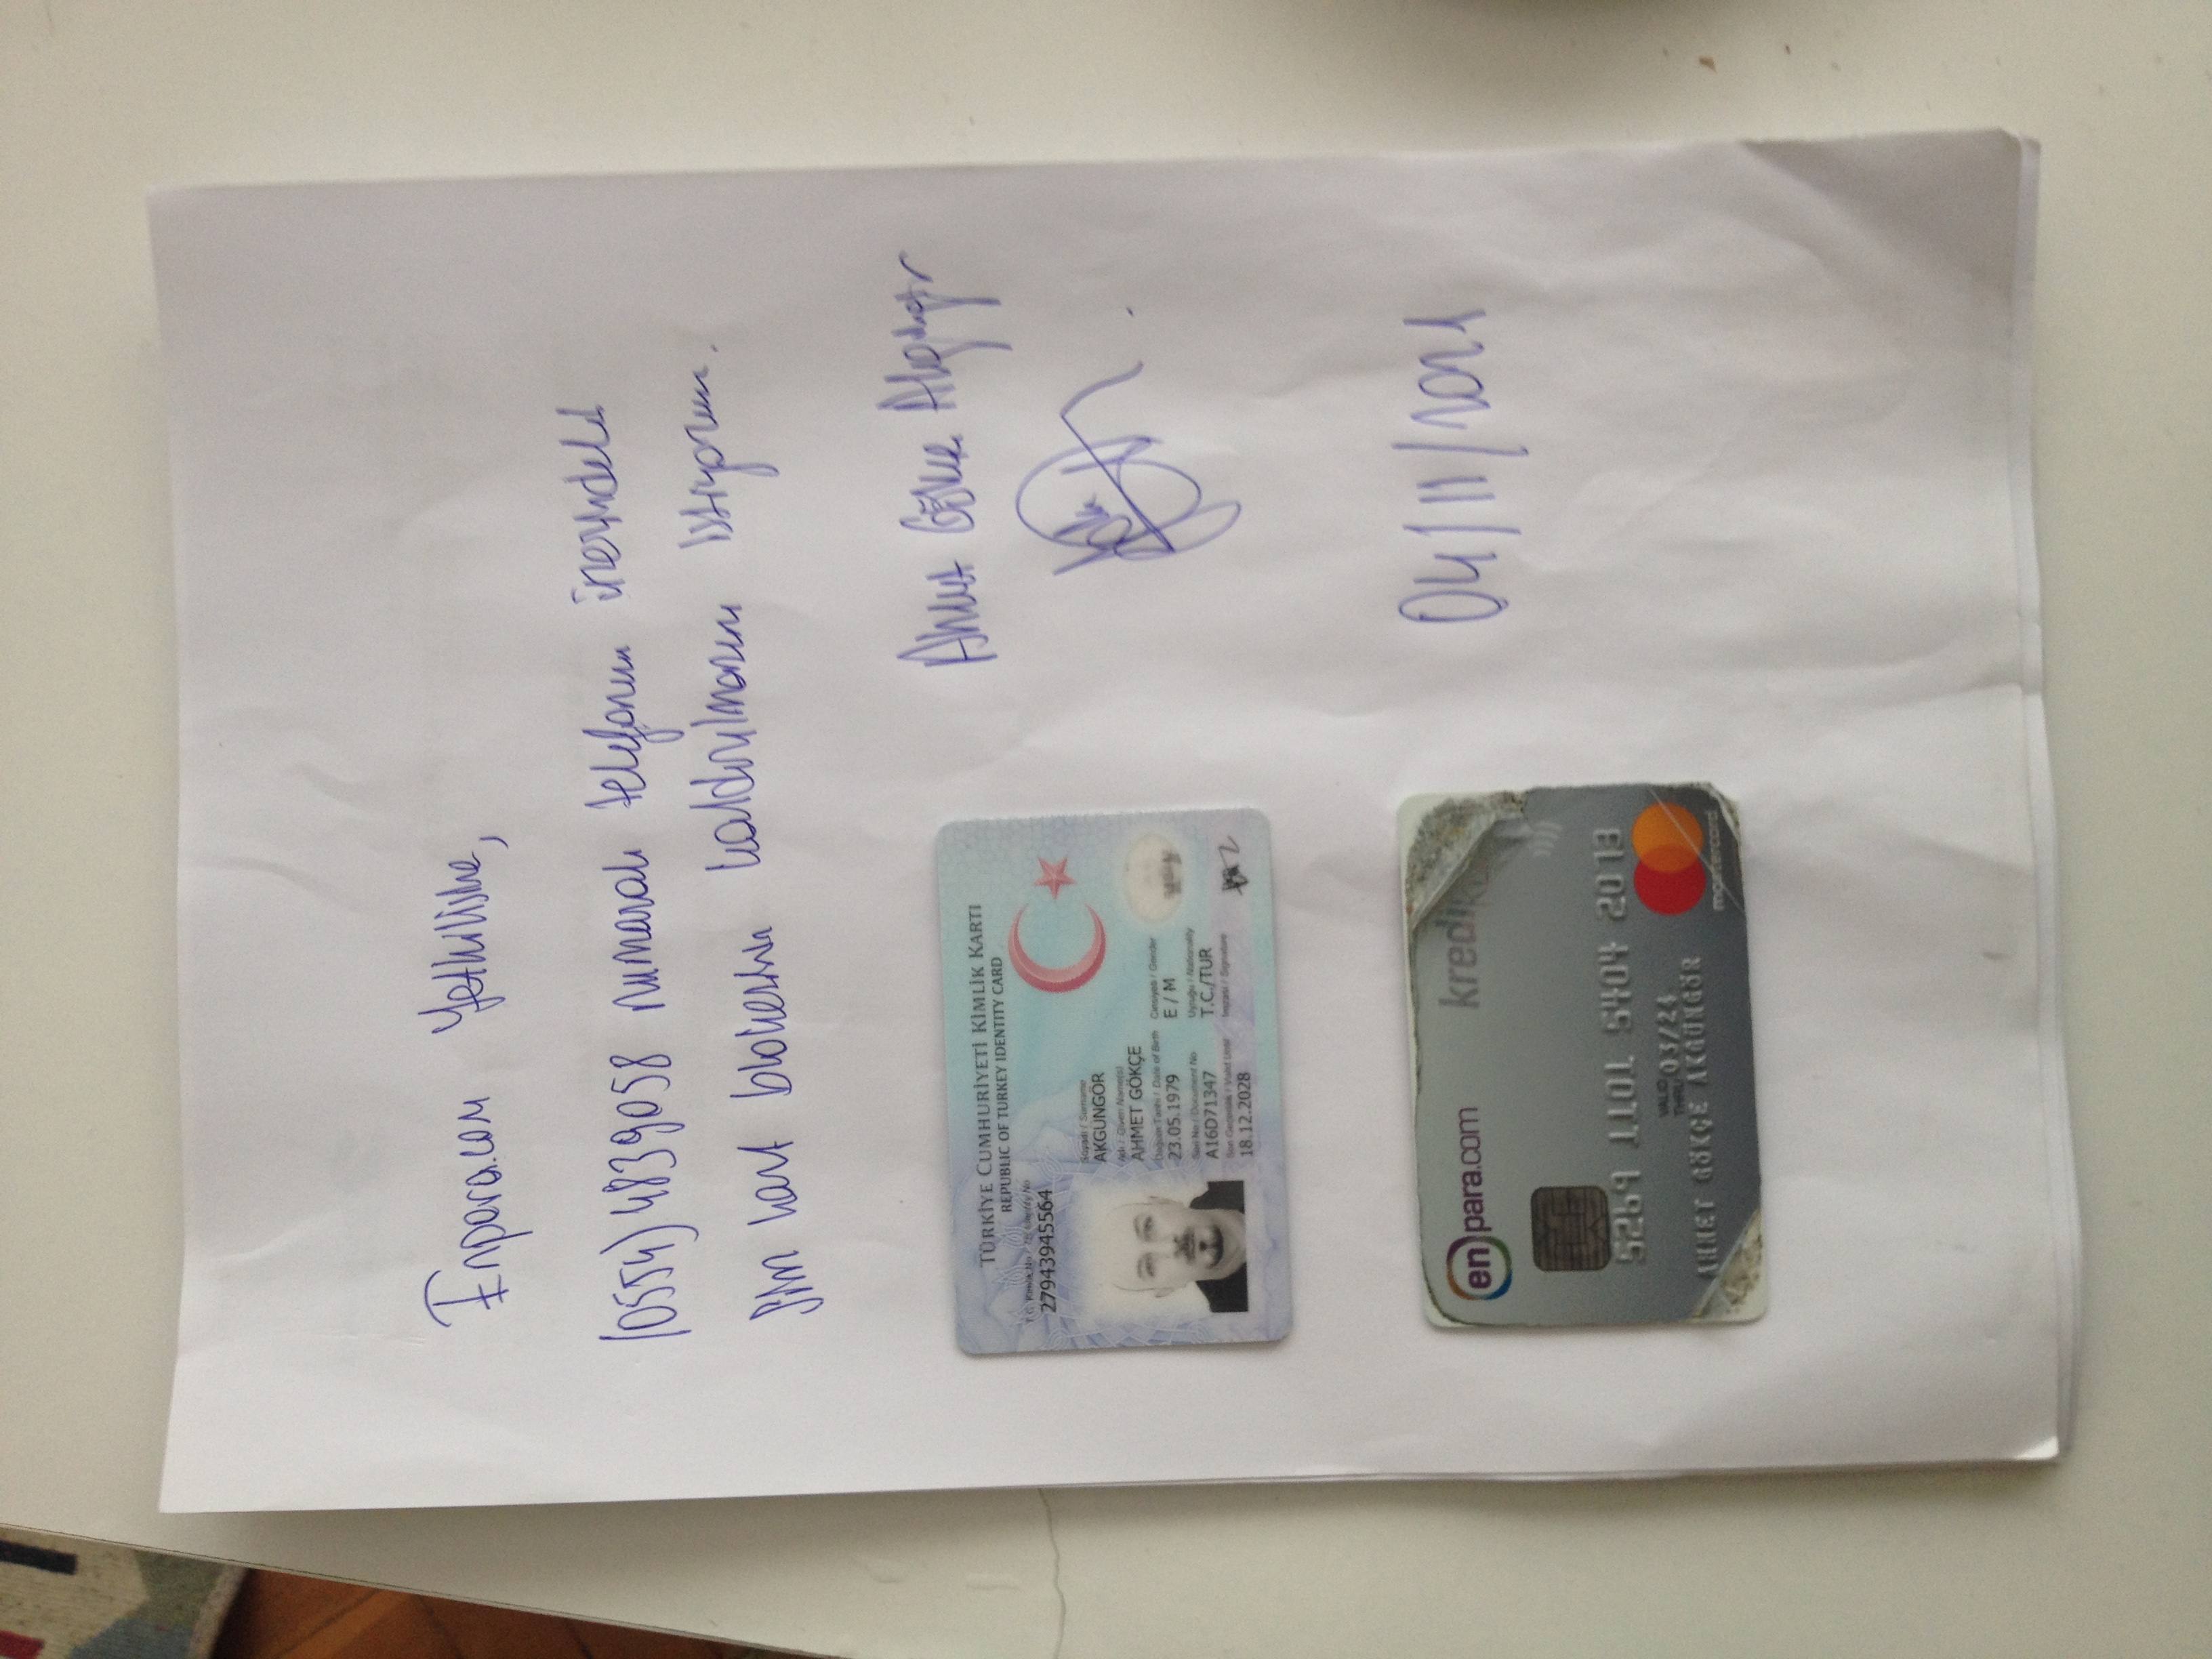 Enpara.com Yetkilisine,
numaralı telefonun üzerindeki
Sim kart blokesinin kaldırılmasını istiyorum.
Ahmet Gökçe Akgüngör
TÜRKİYE CUMHURİYETİ KİMLİK KARTI
REPUBLIC OF TURKEY IDENTITY CARD
T.C. Kimlik No / TR Identity No
Soyadı / Surname
AKGÜNGÖR
Adı / Given Name(s)
AHMET GÖKÇE
Doğum Tarihi / Date of Birth Cinsiyeti / Gender
E / M
Seri No / Document No Uyruğu / Nationality
T.C./TUR
Son Geçerlilik / Valid Until İmzası / Signature
04/11/2021
enpara.com kredi
VALID THRU
AHMET GÖKÇE AKGÜNGÖR
mastercard